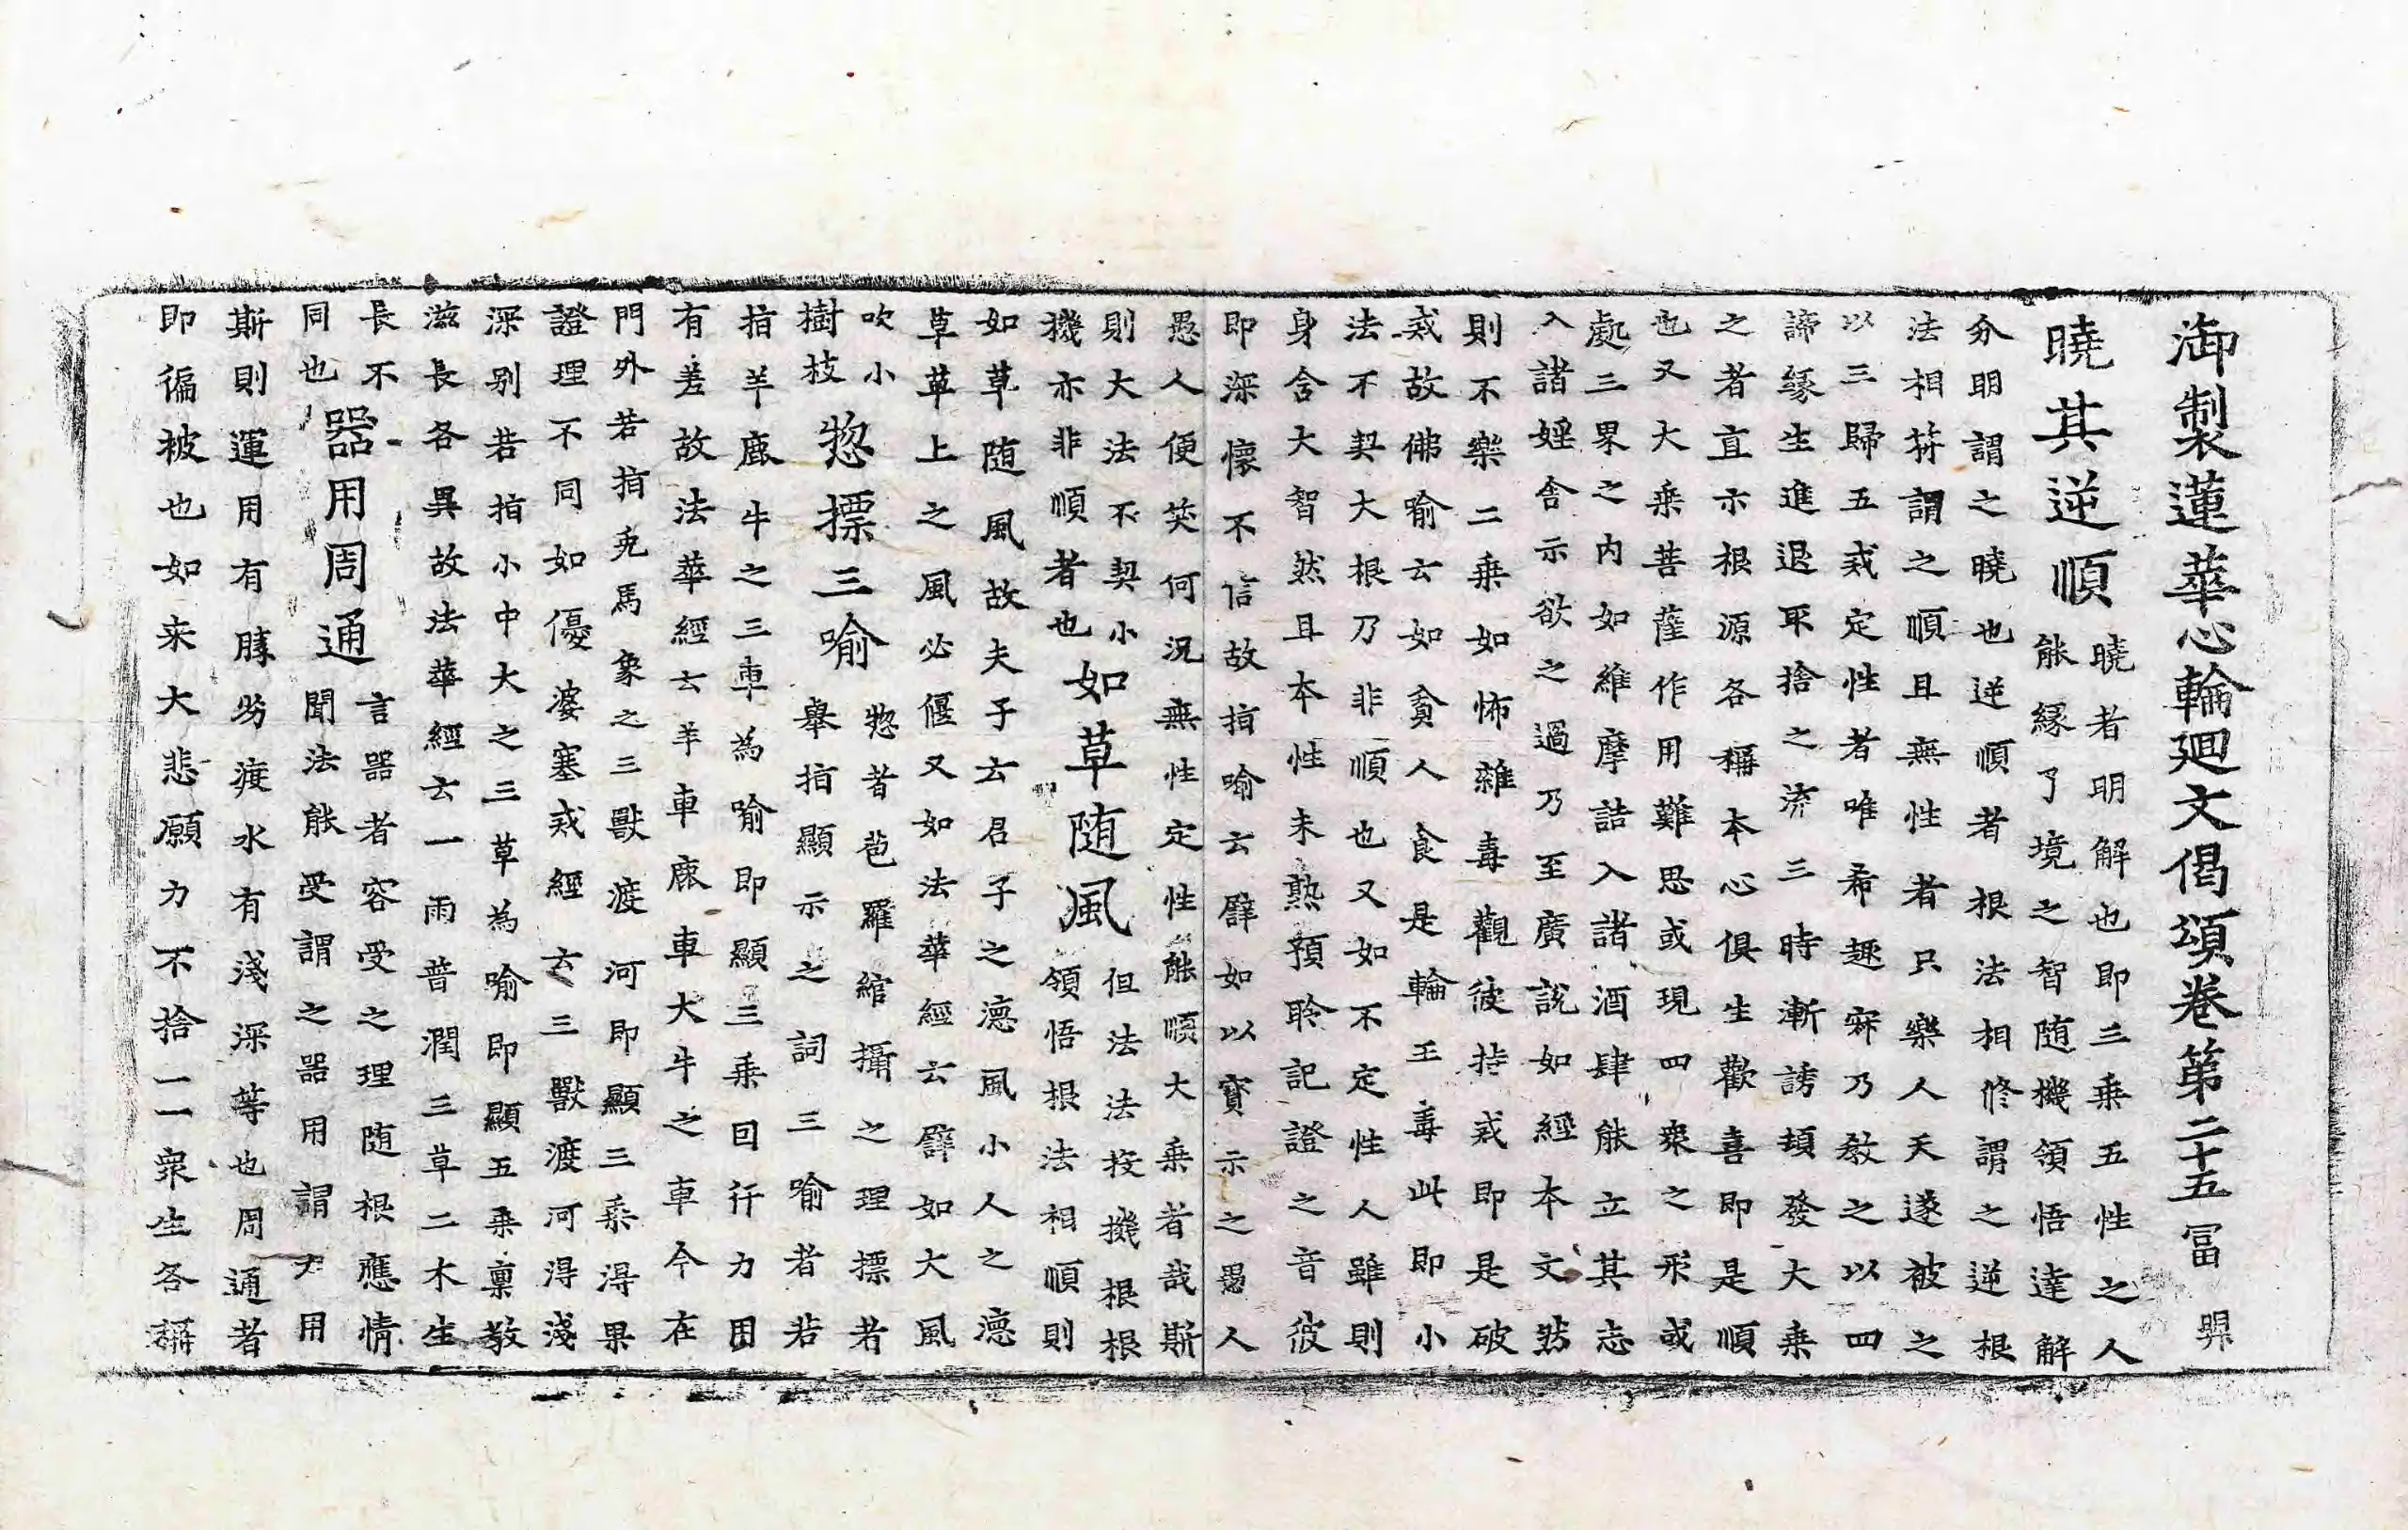 御製蓮華心輪廻文偈頌卷第二十五 冨 㢲
曉其逆順 曉者明解也即三乗五性之人
能緣了境之智随機領悟達解
分明謂之曉也逆順者根法相修謂之逆根
法相符謂之順且無性者只樂人天遂被之
以三歸五戒定性者唯希趣寂乃教之以四
諦緣生進退取捨之流三時漸誘頓發大乗
之者直示根源各稱本心俱生歡喜即是順
也又大乗菩薩作用難思或現四衆之形或
處三界之内如維摩詰入諸酒肆能立其志
入諸婬舍示欲之過乃至廣說如經本文然
則不樂二乗如怖雜毒觀彼持戒即是破
戒故佛喻云如貧人食是輪王毒此即小
法不契大根乃非順也又如不定性人雖則
身含大智然且本性未熟預聆記證之音彼
即深懷不信故指喻云譬如以寳示之愚人
愚人便笑何況無性定性能順大乗者哉斯
則大法不契小 但法法投機根根
機亦非順者也 如草随風 領悟根法相順則
如草随風故夫子云君子之德風小人之德
草草上之風必偃又如法華經云譬如大風
吹小
樹枝 惣摽三喻 惣者苞羅綰攝之理摽者
舉指顯示之詞三喻者若
指羊鹿牛之三車為喻即顯三乗因行力用
有差故法華經云羊車鹿車大牛之車今在
門外若指兎馬象之三獸渡河即顯三乗得果
證理不同如優婆塞戒經云三獸渡河得淺
深别若指小中大之三草為喻即顯五乗禀教
滋長各異故法華經云一雨普潤三草二木生
長不
同也 器用周通 言器者容受之理随根應情
聞法能受謂之器用謂力用
斯則運用有勝劣渡水有淺深等也周通者
即徧被也如来大悲願力不捨一一衆生各稱